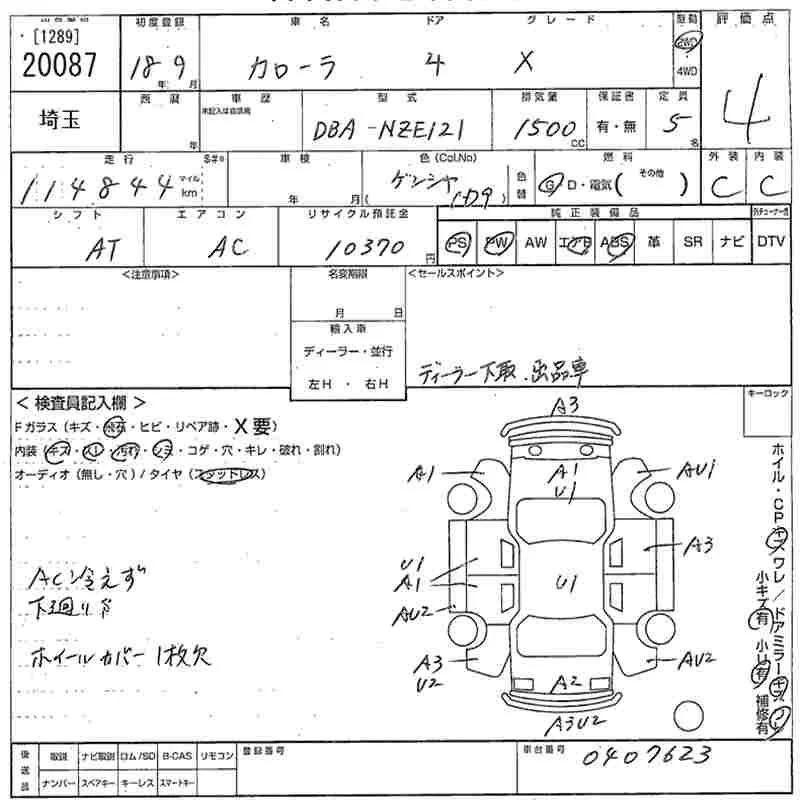 [1289]
20087
初度登録 車名 ドア グレード 駆動 評価点
18年 9月 カローラ 4 X 2WD 4WD 4
埼玉
西暦 車歴 型式 排気量 保証書 定員
年 未記入は自家用 DBA-NZE121 1500 CC 有・無 5名
走行 S#* 車検 色(Col.No) 燃料 外装 内装
114844 マイル km 年 月 ゲンシャ(1D9) 色替 G D・電気( その他 ) C C
シフト エアコン リサイクル預託金 純正装備品
AT AC 10370円 PS PW AW エアB ABS 革 SR ナビ DTV
<注意事項> 名変期限 <セールスポイント>
月 日
輸入車
ディーラー・並行
左H ・ 右H
ディーラー下取・出品車
<検査員記入欄> キーロック
Fガラス(キズ・飛石・ヒビ・リペア跡・X要)
内装(キズ・スレ・汚れ・シミ・コゲ・穴・キレ・破れ・割れ)
オーディオ(無し・穴)/タイヤ(スタッドレス)
AC冷えず
下廻りサ
ホイールカバー1枚欠
A3
A1 A1 U1 AU1
U1 A1 A3
AU2 U1
A3 U2 AU2
A2
A3U2
ホイル・CPキズワレ/ドアミラーキズワレ
小キズ有 小U有 補修有
後送品 取説 ナビ取説 ロム/SD B-CAS リモコン 登録番号 車台番号
ナンバー スペアキー キーレス スマートキー 0407623